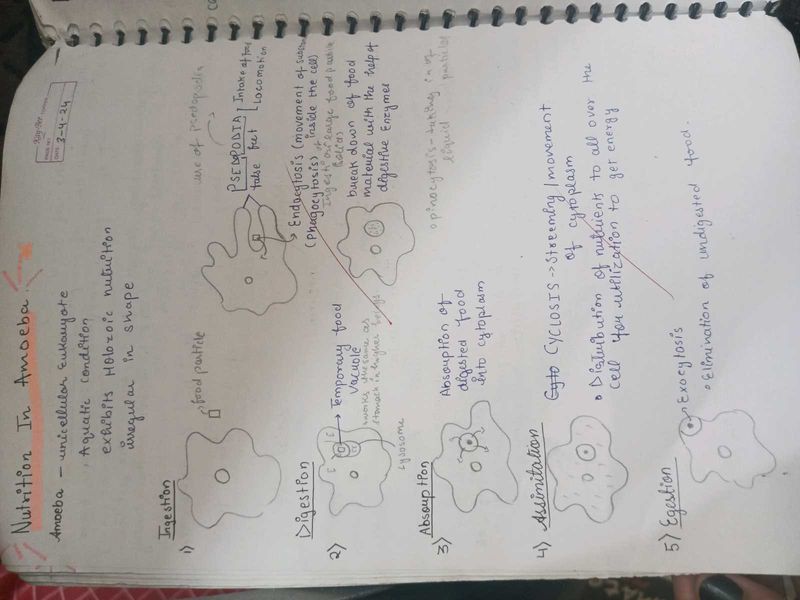 DATE 3-4-24
Nutrition In Amoeba
Amoeba - unicellular Eukaryote
Aquatic condition
exhibits Holozoic nutrition
irregular in shape
Ingestion
1)
food particle
use of psedopodia
PSEDOPODIA
false feet
Intake of food
Locomotion
Endocytosis (movement of
(Phagocytosis) inside the cell)
Ingestion large food particle
Digestion
2)
Temporary food
vacuole
works the same as
stomach in higher beings
lysosome
break down of food
material with the help of
digestive Enzymes
Absorption
3)
Absorption of
digested food
into cytoplasm
pinocytosis - taking in of
liquid particles
4) Assimilation
Cyto CYCLOSIS → Streeming/movement
of cytoplasm
• Distribution of nutrients to all over the
cell for utilization to get energy
5) Egestion
Exocytosis
• Elimination of undigested food.